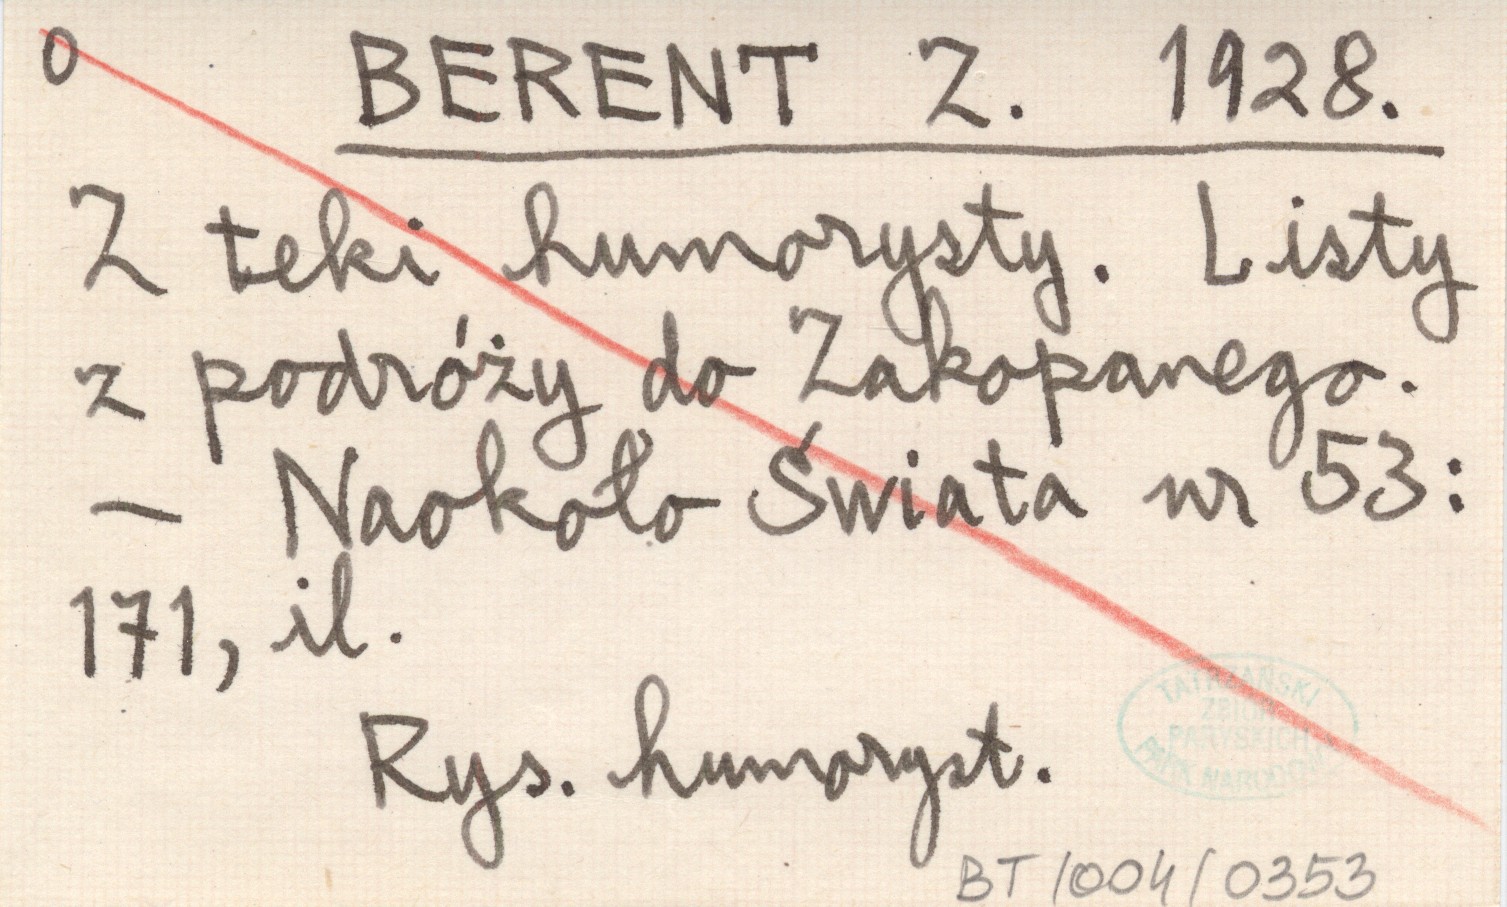 0 BERENT Z. 1928.
Z teki humorysty. Listy
z podróży do Zakopanego.
— Naokoło Świata nr 53:
171, il.
Rys. humoryst.
TATRZAŃSKI
ZBIÓR
PARYSKICH
PARK NARODOWY
BT/004/0353